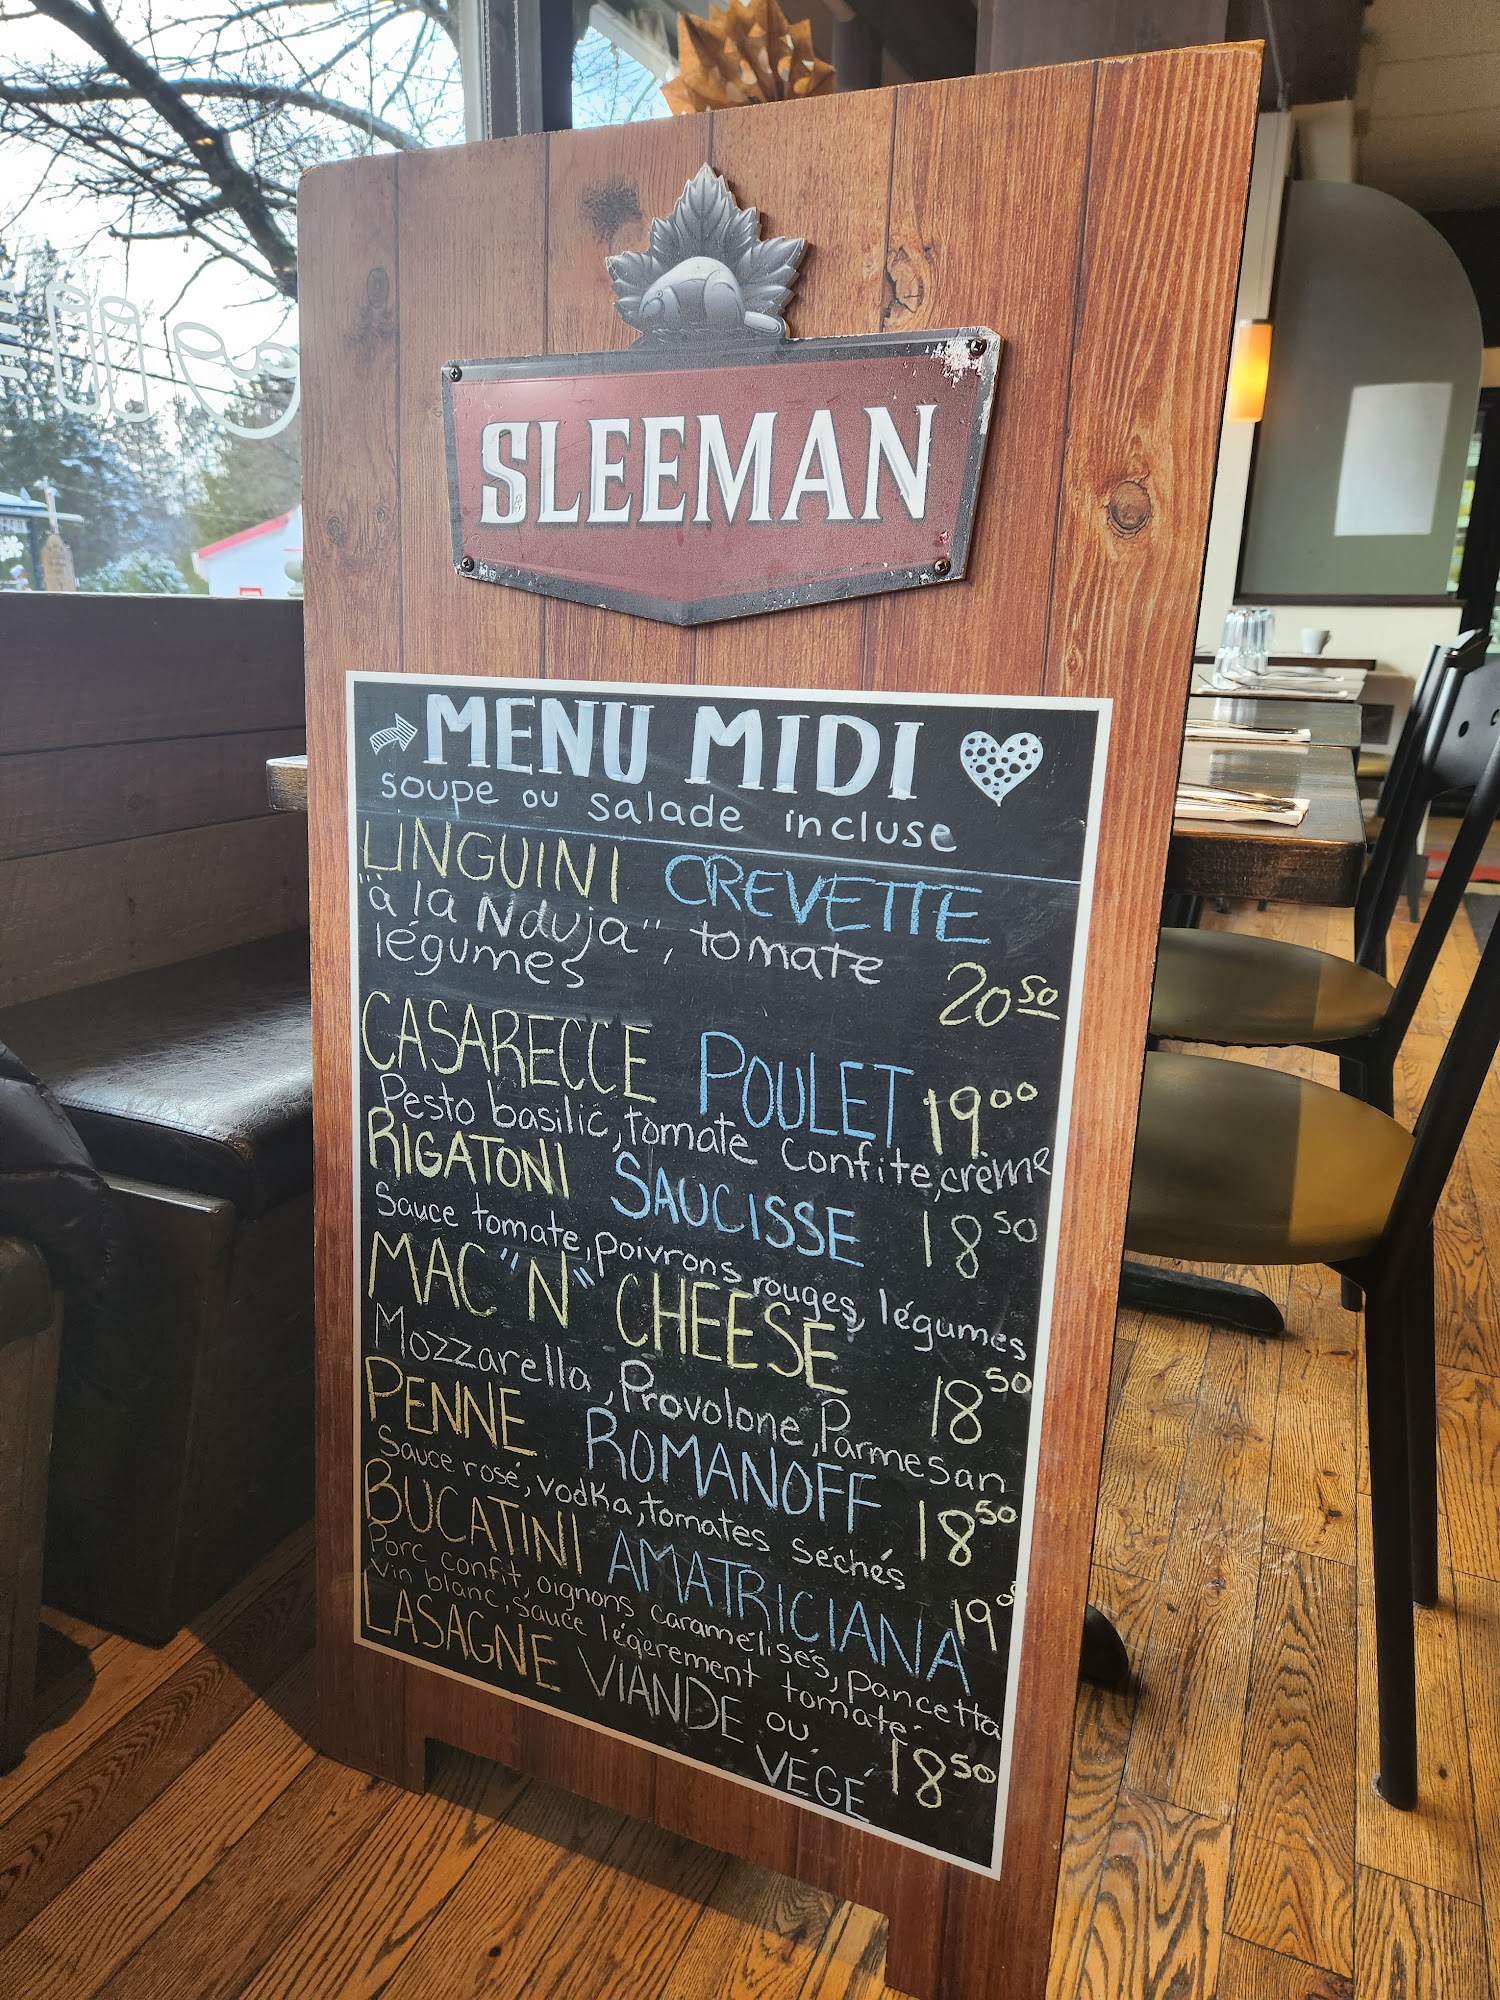 SLEEMAN
MENU MIDI
soupe ou salade incluse
LINGUINI CREVETTE
"à la Nduja", tomate
légumes 20 50
CASARECCE POULET 19 00
Pesto basilic, tomate confite, crème
RIGATONI SAUCISSE 18 50
Sauce tomate, poivrons rouges, légumes
MAC "N" CHEESE 18 50
Mozzarella, Provolone, Parmesan
PENNE ROMANOFF 18 50
Sauce rosé, vodka, tomates séchés
BUCATINI AMATRICIANA 19 00
Porc confit, oignons caramélisés, pancetta
vin blanc, sauce légèrement tomate
LASAGNE VIANDE ou
VÉGÉ 18 50